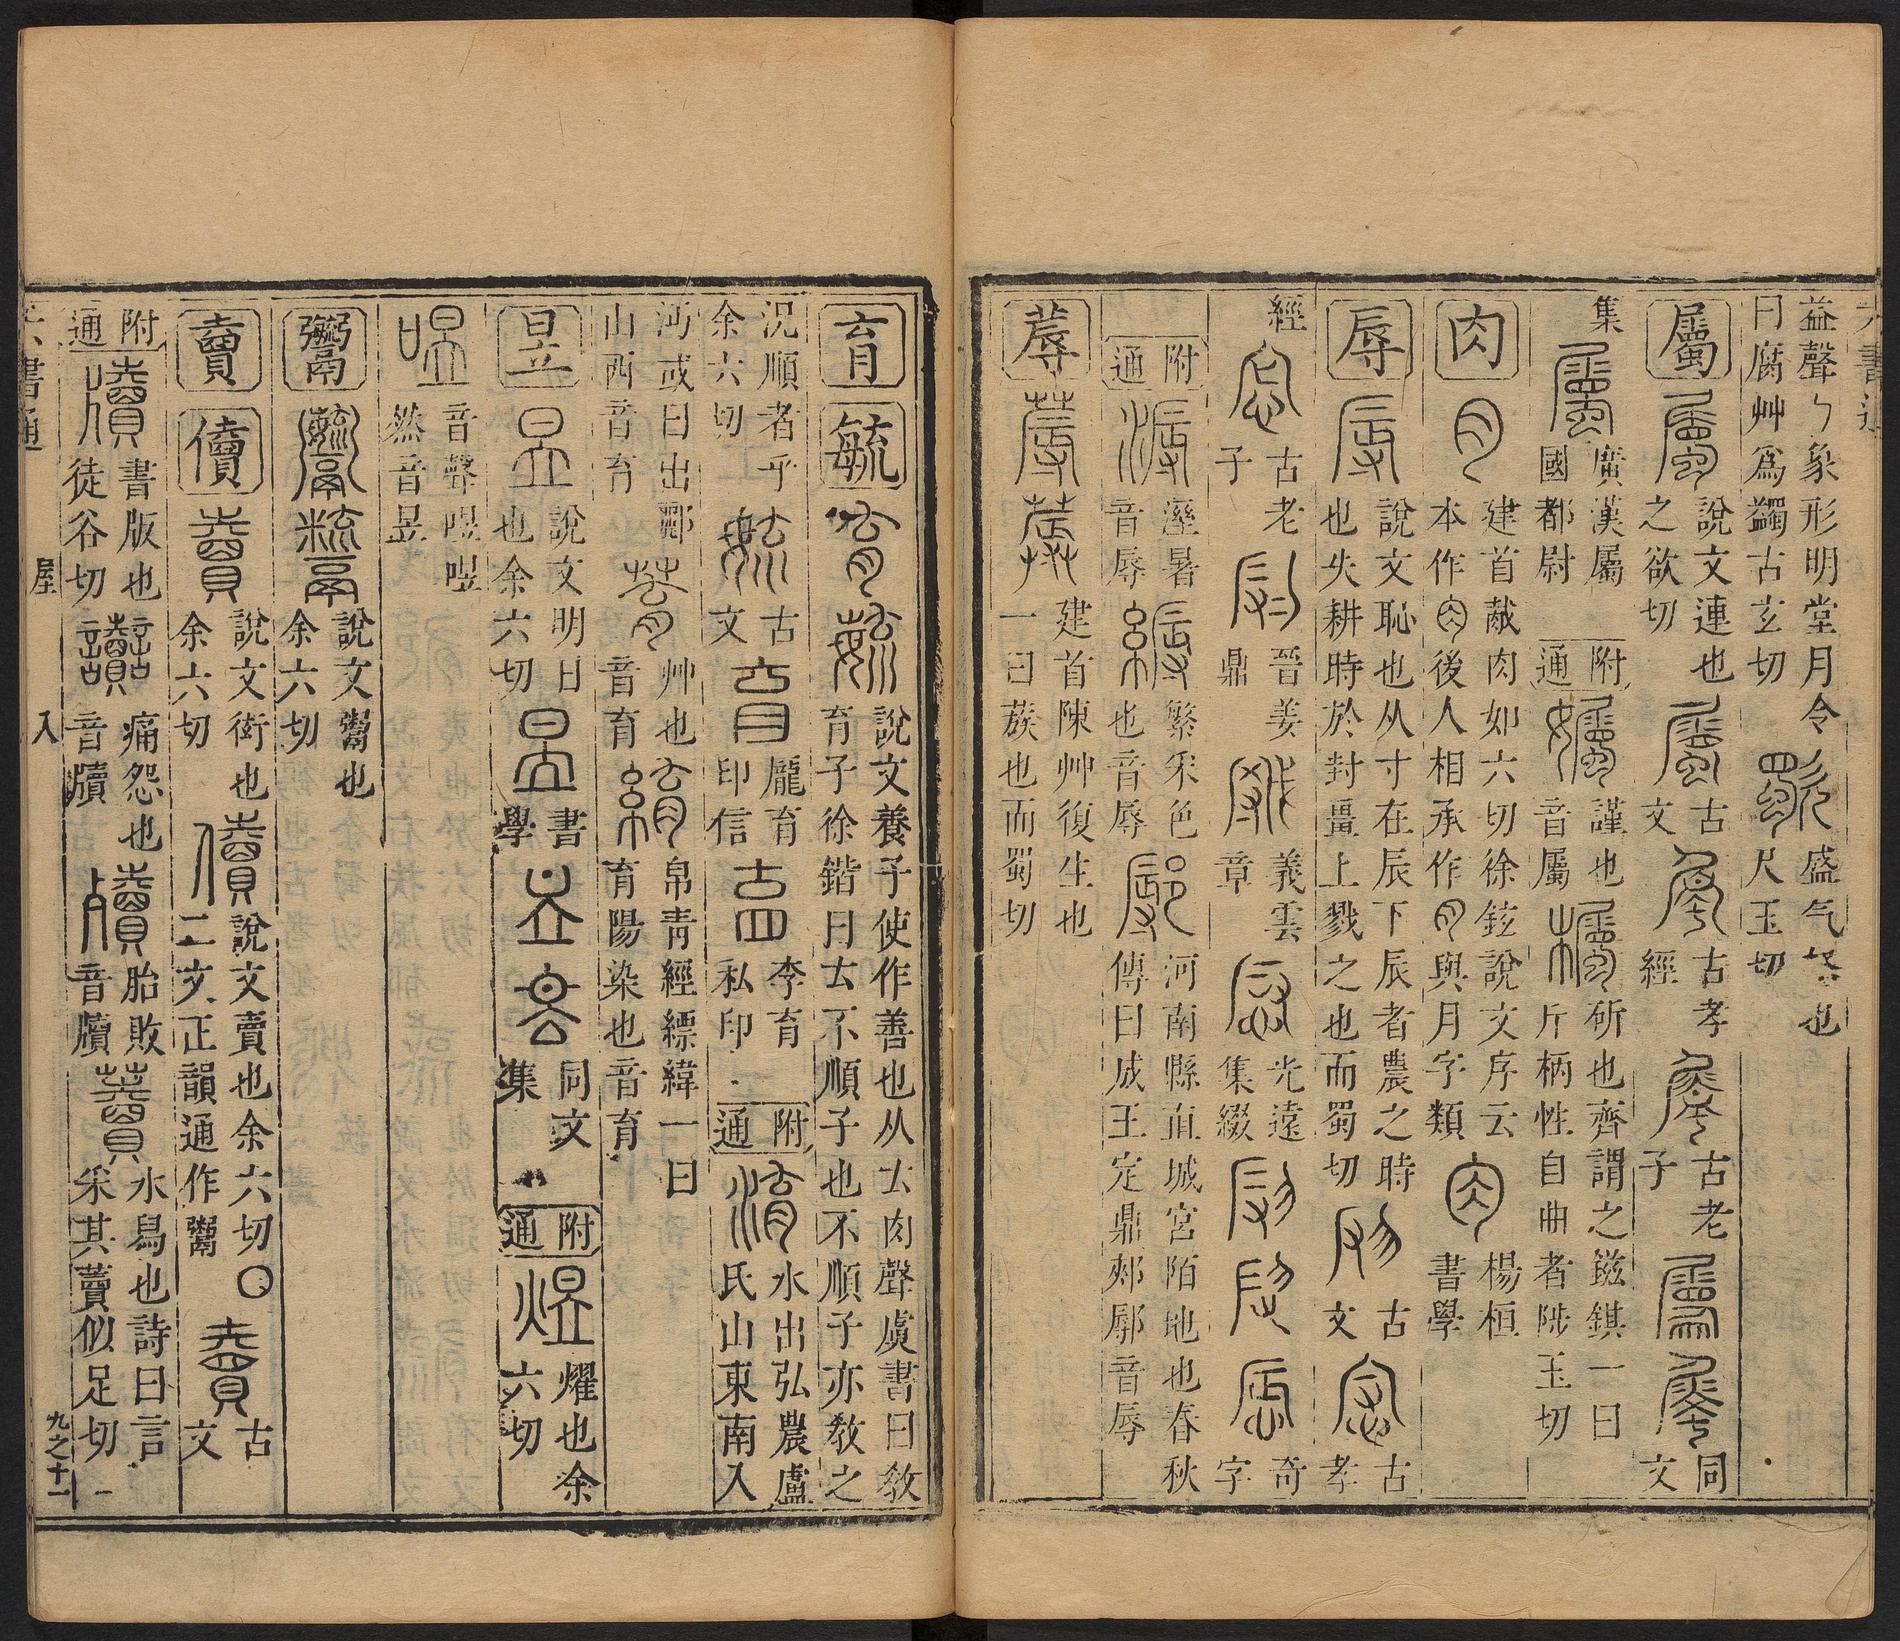 六書通
益聲ㄅ象形明堂月令
曰腐艸爲蠲古玄切
盛气怒也
尺玉切
屬
說文連也
之欲切
古
文
古孝
經
古老
子
同
文
集
廣漢屬
國都尉
附
通
謹也
音屬
斫也齊謂之鎡錤一曰
斤柄性自曲者陟玉切
肉
建首胾肉如六切徐鉉說文序云
本作肉後人相承作月與月字類
楊桓
書學
辱
說文恥也从寸在辰下辰者農之時
也失耕時於封畺上戮之也而蜀切
古
文
古
孝
經
古老
子
晉姜
鼎
義雲
章
光遠
集綴
奇
字
附
通
溼暑
音辱
繁采色
也音辱
河南縣直城宮陌地也春秋
傳曰成王定鼎郟鄏音辱
蓐
建首陳艸復生也
一曰蔟也而蜀切
育
毓
說文養子使作善也从𠫓肉聲虞書曰敎
育子徐鍇曰𠫓不順子也不順子亦敎之
況順者乎
余六切
古
文
龐育
印信
李育
私印
附
通
水出弘農盧
氏山東南入
沔或曰出酈
山西音育
艸也
音育
帛靑經縹緯一曰
育陽染也音育
昱
說文明日
也余六切
書
學
同文
集
附
通
煜
燿也余
六切
音聲喅喅
然音昱
鬻
說文鬻也
余六切
𧶠
儥
說文衒也
余六切
說文賣也余六切〇
二文正韻通作鬻
古
文
附
通
書版也
徒谷切
痛怨也
音牘
胎敗也
音牘
水舃也詩曰言
采其藚似足切
六書通
屋
入
九之十一